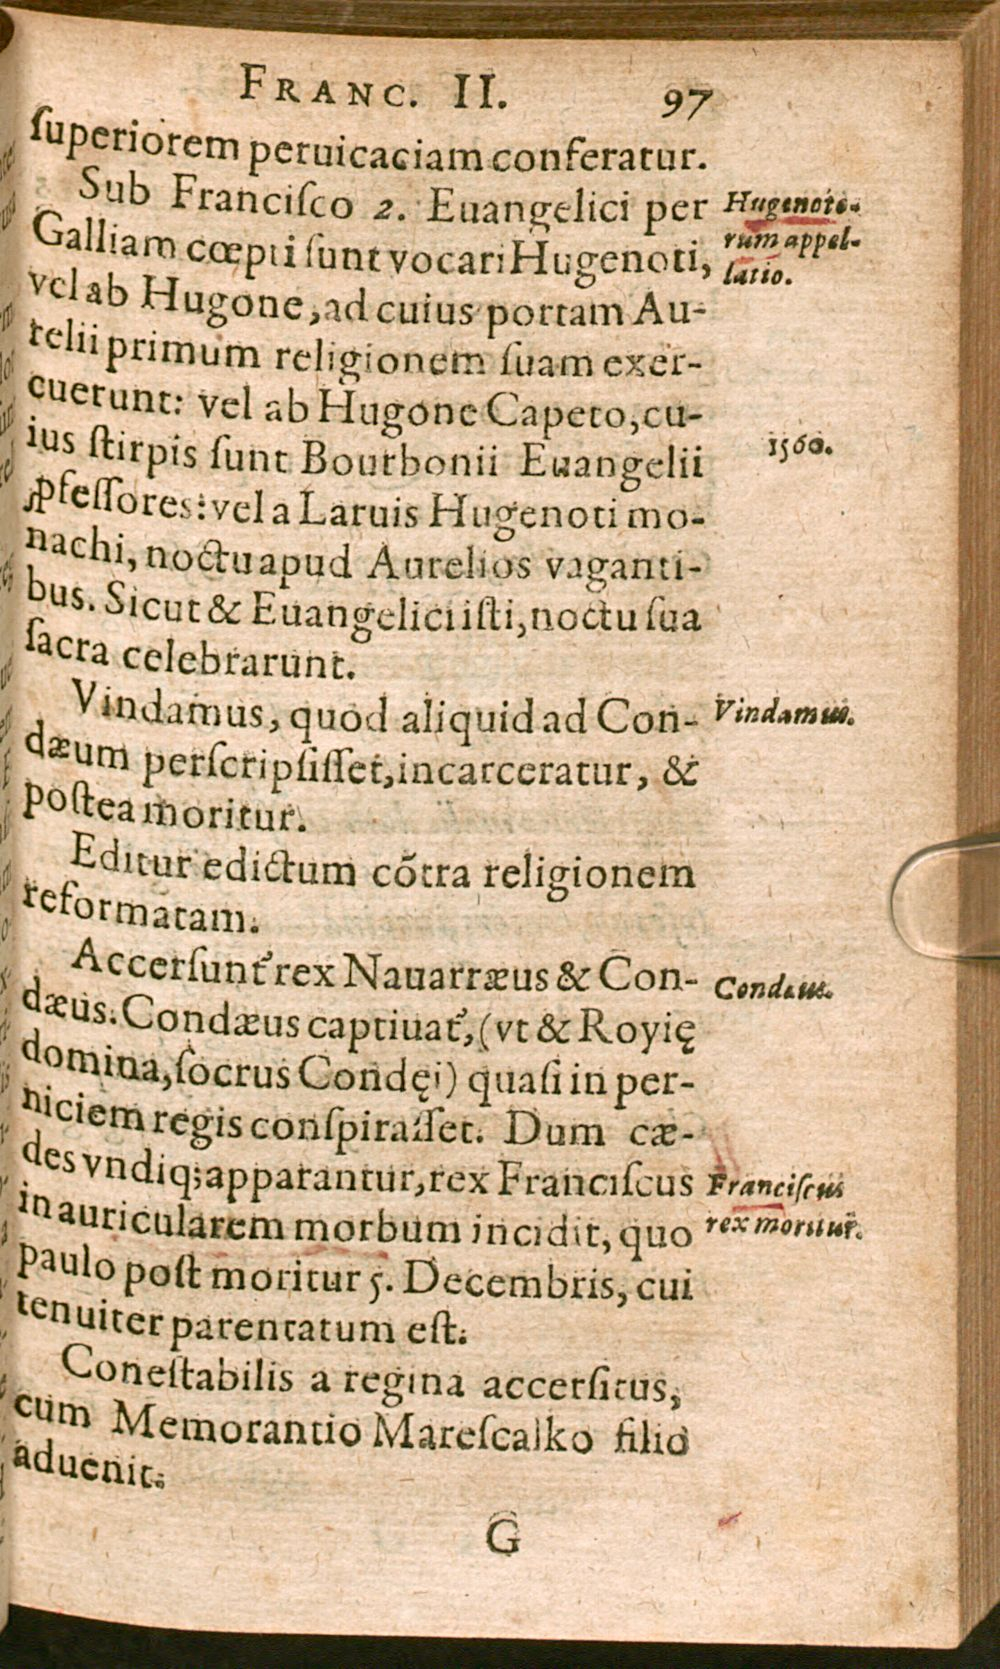 FRANC. II. 97
ſuperiorem peruicaciam conferatur.
Sub Franciſco 2. Euangelici per
Galliam cœpti ſunt vocari Hugenoti,
vel ab Hugone, ad cuius portam Au-
relii primum religionem ſuam exer-
cuerunt: vel ab Hugone Capeto, cu-
ius ſtirpis ſunt Bourbonii Euangelii
ꝓfeſſores: vel a Laruis Hugenoti mo-
nachi, noctu apud Aurelios vaganti-
bus. Sicut & Euangelici iſti, noctu ſua
ſacra celebrarunt.
Vindamus, quod aliquid ad Con-
dæum perſcripſiſſet, incarceratur, &
poſtea moritur.
Editur edictum cõtra religionem
reformatam.
Accerſunt᷑ rex Nauarræus & Con-
dæus. Condæus captiuat᷑, (vt & Royię
domina, ſocrus Condęi) quaſi in per-
niciem regis conſpiraſſet. Dum cæ-
des vndiq; apparantur, rex Franciſcus
in auricularem morbum incidit, quo
paulo poſt moritur 5. Decembris, cui
tenuiter parentatum eſt.
Coneſtabilis a regina accerſitus,
cum Memorantio Mareſcalko filio
aduenit.
G
Hugenoto-
rum appel-
latio.
1560.
Vindamus.
Condæus.
Franciſcus
rex moritur.